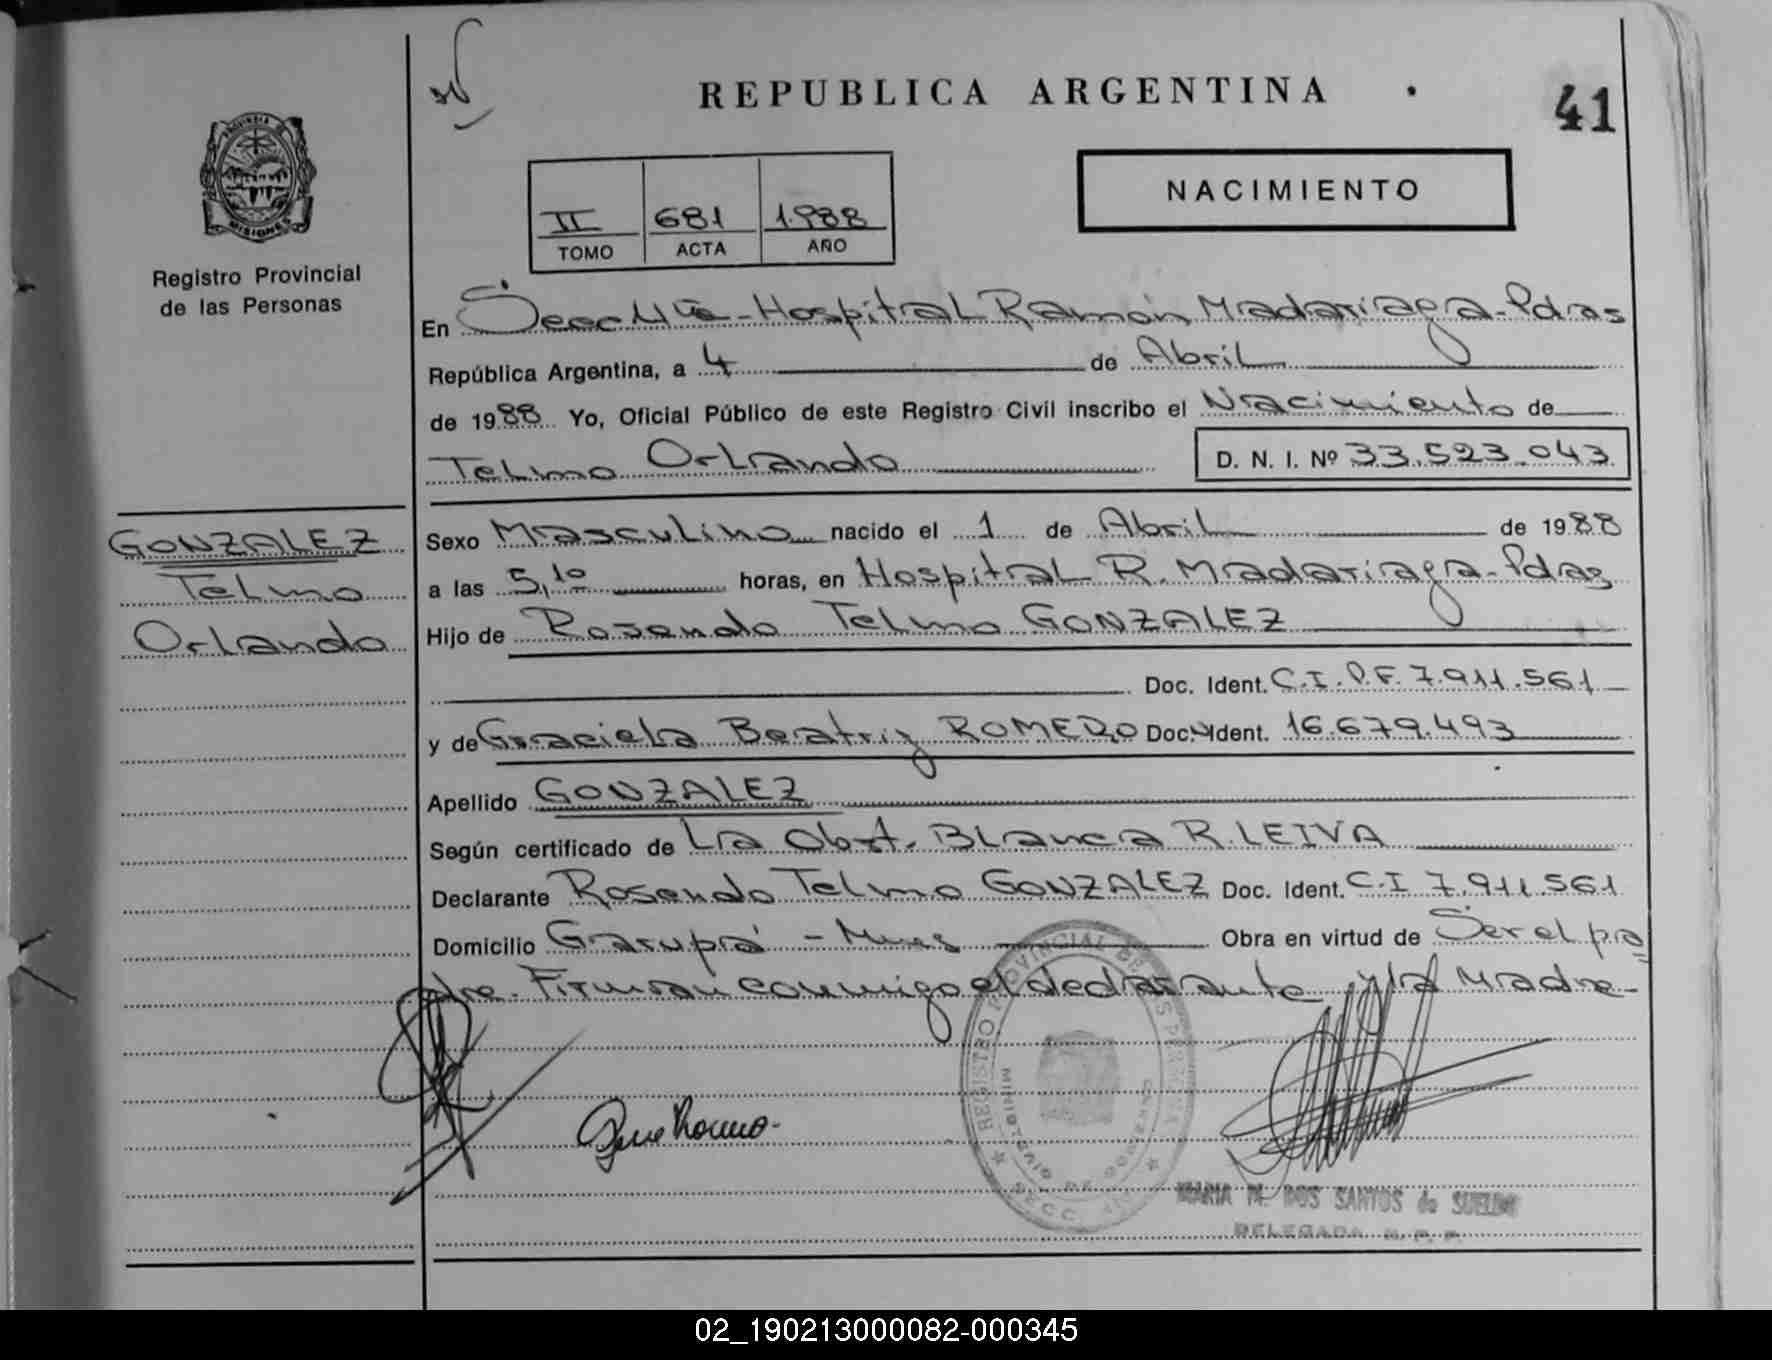 REPUBLICA ARGENTINA
41
PROVINCIA DE
MISIONES
Registro Provincial
de las Personas
II 681 1.988
TOMO ACTA AÑO
NACIMIENTO
En Secc 4ta - Hospital Ramón Madariaga - Pdas
República Argentina, a 4 de Abril
de 1988 Yo, Oficial Público de este Registro Civil inscribo el Nacimiento de
Telmo Orlando D. N. I. Nº 33.523.043
GONZALEZ
Telmo
Orlando
Sexo Masculino nacido el 1 de Abril de 1988
a las 5,10 horas, en Hospital R. Madariaga - Pdas
Hijo de Rosendo Telmo GONZALEZ
Doc. Ident. C.I.P.F. 7.911.561
y de Graciela Beatriz ROMERO Doc. Ident. 16.679.493
Apellido GONZALEZ
Según certificado de La Obst. Blanca R. LEIVA
Declarante Rosendo Telmo GONZALEZ Doc. Ident. C.I 7.911.561
Domicilio Garupá - Mnes Obra en virtud de Ser el pa
dre. Firman conmigo el declarante y la Madre -
REGISTRO PROVINCIAL DE LAS PERSONAS
MINISTERIO DE GOBIERNO
SECC.
MARIA M. DOS SANTOS de SUELDO
DELEGADA R. P. P.
02_190213000082-000345